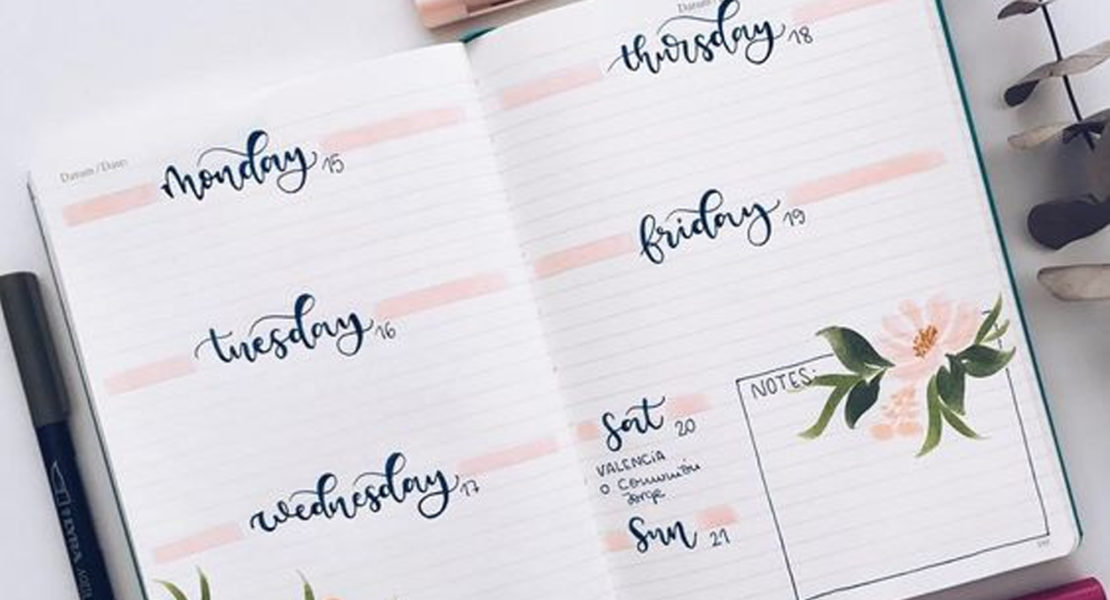 Datum / Date:
monday 15
tuesday 16
wednesday 17
Datum
thursday 18
friday 19
sat 20
VALENCIA
o Comunión
Jorge
sun 21
NOTES:
LYRA